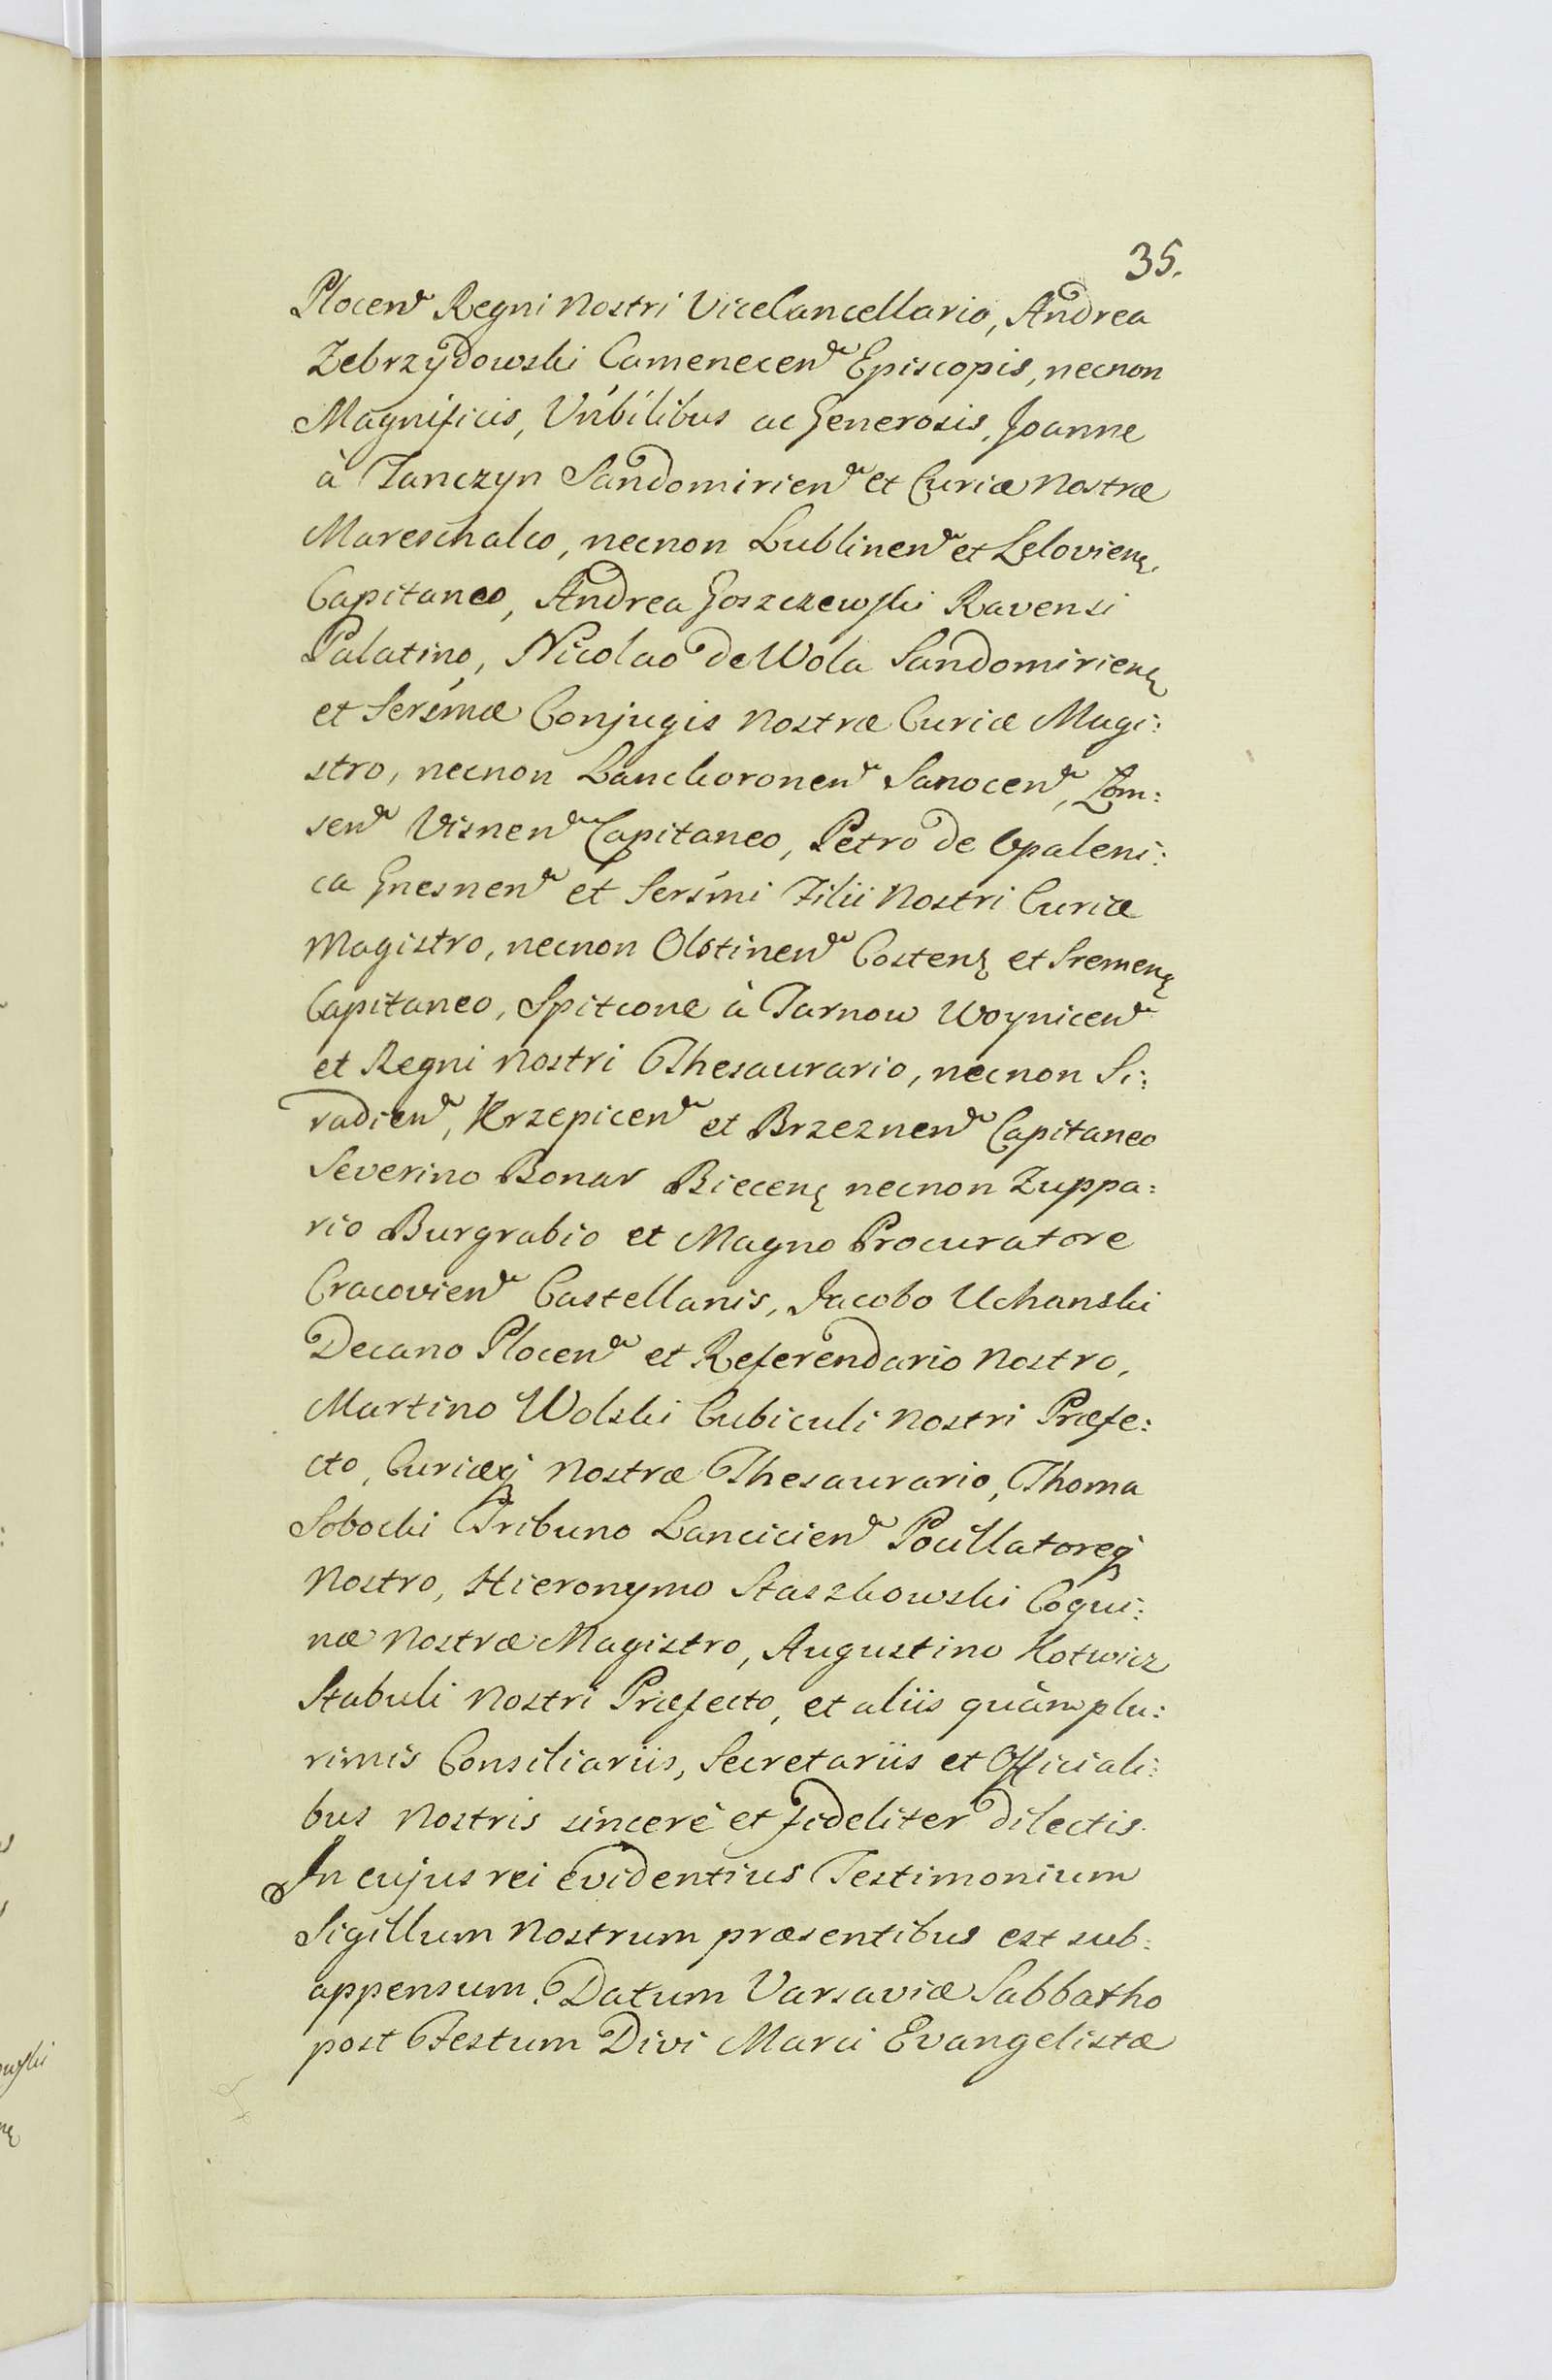 35.
Plocen Regni Nostri ViceCancellario, Andrea
Zebrzÿdowski Camenecen Episcopis, necnon
Magnificis, Vnbilibus ac Generosis, Joanne
à Tanczyn Sandomirien et Curiæ Nostræ
Mareschalco, necnon Lublinen et Leloviens.
Capitaneo, Andrea Goszczewski Ravensi
Palatino, Nicolao de Wola Sandomiriens
et Sersmæ Conjugis Nostræ Curiæ Magi:
stro, necnon Lanckoronen Sanocen, Lom:
sen Visnen Capitaneo, Petro de Opaleni:
ca Gnesnen et Sersmi Filii Nostri Curiæ
Magistro, necnon Olstinen Costens et Sremens
Capitaneo, Spitcone à Tarnow Woynicen
et Regni Nostri Thesaurario, necnon Si:
radien, Krzepicen et Brzeznen Capitaneo
Severino Bonar Biecens necnon Zuppa:
rio Burgrabio et Magno Procuratore
Cracovien Castellanis, Jacobo Uchanski
Decano Plocen et Referendario Nostro,
Martino Wolski Cubiculi Nostri Præfe:
cto, Curiæq Nostræ Thesaurario, Thoma
Sobocki Tribuno Lancicien Pocillatoreq
Nostro, Hieronymo Staszkowski Coqui:
næ Nostræ Magistro, Augustino Kotwicz
Stabuli Nostri Præfecto, et aliis quàm plu:
rimis Consiliariis, Secretariis et Officiali:
bus Nostris sincerè et fideliter dilectis.
In cujus rei evidentius Testimonium
Sigillum Nostrum præsentibus est sub:
appensum. Datum Varsaviæ Sabbatho
post Festum Divi Marci Evangelistæ